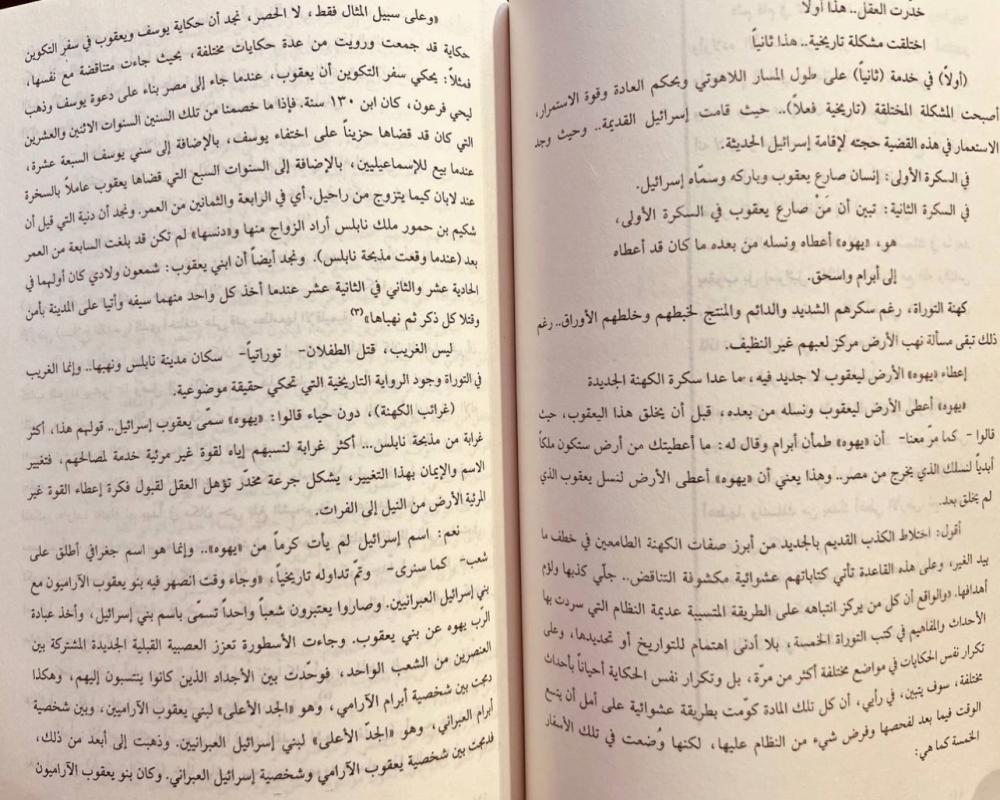 خدّرت العقل.. هذا أولاً
اختلقت مشكلة تاريخية.. هذا ثانياً
(أولاً) في خدمة (ثانياً) على طول المسار اللاهوتي وبحكم العادة وقوة الاستمرار،
أصبحت المشكلة المختلقة (تاريخية فعلاً).. حيث قامت إسرائيل القديمة.. وحيث وجد
الاستعمار في هذه القضية حجته لإقامة إسرائيل الحديثة.
في السكرة الأولى: إنسان صارع يعقوب وباركه وسمّاه إسرائيل.
في السكرة الثانية: تبين أن مَنْ صارع يعقوب في السكرة الأولى،
هو، «يهوه» أعطاه ونسله من بعده ما كان قد أعطاه
إلى أبرام واسحق.
كهنة التوراة، رغم سكرهم الشديد والدائم والمنتج لخبطهم وخلطهم الأوراق.. رغم
ذلك تبقى مسألة نهب الأرض مركز لعبهم غير النظيف.
إعطاء «يهوه» الأرض ليعقوب لا جديد فيه، ما عدا سكرة الكهنة الجديدة
«يهوه» أعطى الأرض ليعقوب ونسله من بعده، قبل أن يخلق هذا اليعقوب، حيث
قالوا - كما مرّ معنا- أن «يهوه» طمأن أبرام وقال له: ما أعطيتك من أرض ستكون ملكاً
أبدياً لنسلك الذي يخرج من مصر.. وهذا يعني أن «يهوه» أعطى الأرض لنسل يعقوب الذي
لم يخلق بعد.
أقول: اختلاط الكذب القديم بالجديد من أبرز صفات الكهنة الطامعين في خطف ما
بيد الغير، وعلى هذه القاعدة تأتي كتاباتهم عشوائية مكشوفة التناقض.. جلّي كذبها ولؤم
أهدافها. «والواقع أن كل من يركز انتباهه على الطريقة المتسببة عديمة النظام التي سردت بها
الأحداث والمفاهيم في كتب التوراة الخمسة، بلا أدنى اهتمام للتواريخ أو تحديدها، وعلى
تكرار نفس الحكايات في مواضع مختلفة أكثر من مرّة، بل وتكرار نفس الحكاية أحياناً بأحداث
مختلفة، سوف يتبين، في رأيي، أن كل تلك المادة كوّمت بطريقة عشوائية على أمل أن يتسع
الوقت فيما بعد لفحصها وفرض شيء من النظام عليها، لكنها وُضعت في تلك الأسفار
الخمسة كما هي:
«وعلى سبيل المثال فقط، لا الحصر، نجد أن حكاية يوسف ويعقوب في سفر التكوين
حكاية قد جمعت ورويت من عدة حكايات مختلفة، بحيث جاءت متناقضة مع نفسها،
فمثلاً: يحكي سفر التكوين أن يعقوب، عندما جاء إلى مصر بناء على دعوة يوسف وذهب
ليحي فرعون، كان ابن ١٣٠ سنة. فإذا ما خصمنا من تلك السنين السنوات الاثنين والعشرين
التي كان قد قضاها حزيناً على اختفاء يوسف، بالإضافة إلى سني يوسف السبعة عشرة،
عندما بيع للإسماعيليين، بالإضافة إلى السنوات السبع التي قضاها يعقوب عاملاً بالسخرة
عند لابان كيما يتزوج من راحيل. أي في الرابعة والثمانين من العمر. ونجد أن دنية التي قيل أن
شكيم بن حمور ملك نابلس أراد الزواج منها و«دنسها» لم تكن قد بلغت السابعة من العمر
بعد (عندما وقعت مذبحة نابلس). ونجد أيضاً أن ابني يعقوب: شمعون ولادي كان أولهما في
الحادية عشر والثاني في الثانية عشر عندما أخذ كل واحد منهما سيفه وأتيا على المدينة بأمن
وقتلا كل ذكر ثم نهباها»(٣)
ليس الغريب، قتل الطفلان- توراتياً- سكان مدينة نابلس ونهبها.. وإنما الغريب
في التوراة وجود الرواية التاريخية التي تحكي حقيقة موضوعية.
(غرائب الكهنة)، دون حياء قالوا: «يهوه» سمّى يعقوب إسرائيل.. قولهم هذا، أكثر
غرابة من مذبحة نابلس... أكثر غرابة لنسبهم إياه لقوة غير مرئية خدمة لمصالحهم، فتغيير
الاسم والإيمان بهذا التغيير، يشكل جرعة مخدّر تؤهل العقل لقبول فكرة إعطاء القوة غير
المرئية الأرض من النيل إلى الفرات.
نعم: اسم إسرائيل لم يأت كرماً من «يهوه».. وإنما هو اسم جغرافي أطلق على
شعب- كما سنرى- وتمّ تداوله تاريخياً، «وجاء وقت انصهر فيه بنو يعقوب الآراميون مع
بني إسرائيل العبرانيين. وصاروا يعتبرون شعباً واحداً تسمّى باسم بني إسرائيل، وأخذ عبادة
الرّب يهوه عن بني يعقوب. وجاءت الأسطورة تعزز العصبية القبلية الجديدة المشتركة بين
العنصرين من الشعب الواحد، فوحّدت بين الأجداد الذين كانوا ينتسبون إليهم، وهكذا
دمجت بين شخصية أبرام الآرامي، وهو «الجد الأعلى» لبني يعقوب الآراميين، وبين شخصية
أبرام العبراني، وهو «الجدّ الأعلى» لبني إسرائيل العبرانيين. وذهبت إلى أبعد من ذلك،
فدمجت بين شخصية يعقوب الآرامي وشخصية إسرائيل العبراني. وكان بنو يعقوب الآراميون